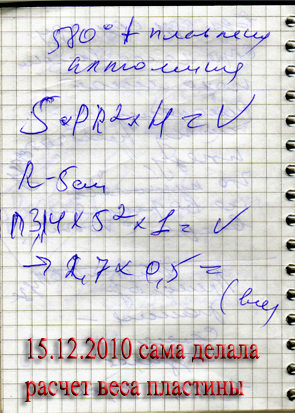 580° t плавления
алюминия
S = ПR² × H = V
R - 5 см
П 3,14 × 5² × 1 = V
→ 2,7 × 0,5 =
(вес)
15.12.2010 сама делала
расчет веса пластины